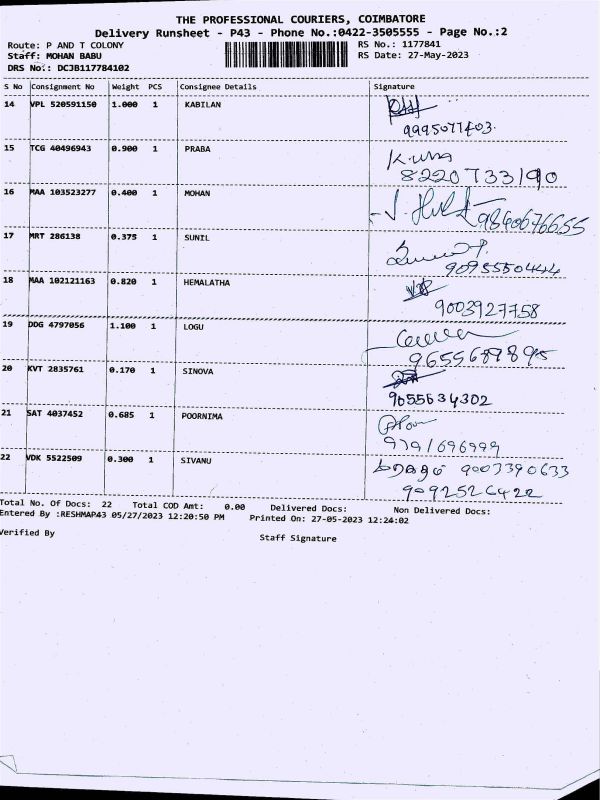 THE PROFESSIONAL COURIERS, COIMBATORE
Delivery Runsheet - P43 - Phone No.:0422-3505555 - Page No.:2
Route: P AND T COLONY
RS No.: 1177841
Staff: MOHAN BABU
RS Date: 27-May-2023
DRS No.: DCJB117784102
S No Consignment No Weight PCS Consignee Details Signature
14 VPL 520591150 1.000 1 KABILAN
9995077403
15 TCG 40496943 0.900 1 PRABA
8220733190
16 MAA 103523277 0.400 1 MOHAN
9840676655
17 MRT 286138 0.375 1 SUNIL
9095550444
18 MAA 102121163 0.820 1 HEMALATHA
9003927758
19 DDG 4797056 1.100 1 LOGU
9655689895
20 KVT 2835761 0.170 1 SINOVA
9655634302
21 SAT 4037452 0.685 1 POORNIMA
9791696999
22 VDK 5522509 0.300 1 SIVANU
9003390633
9092526422
Total No. Of Docs: 22 Total COD Amt: 0.00 Delivered Docs: Non Delivered Docs:
Entered By :RESHMAP43 05/27/2023 12:20:50 PM Printed On: 27-05-2023 12:24:02
Verified By
Staff Signature